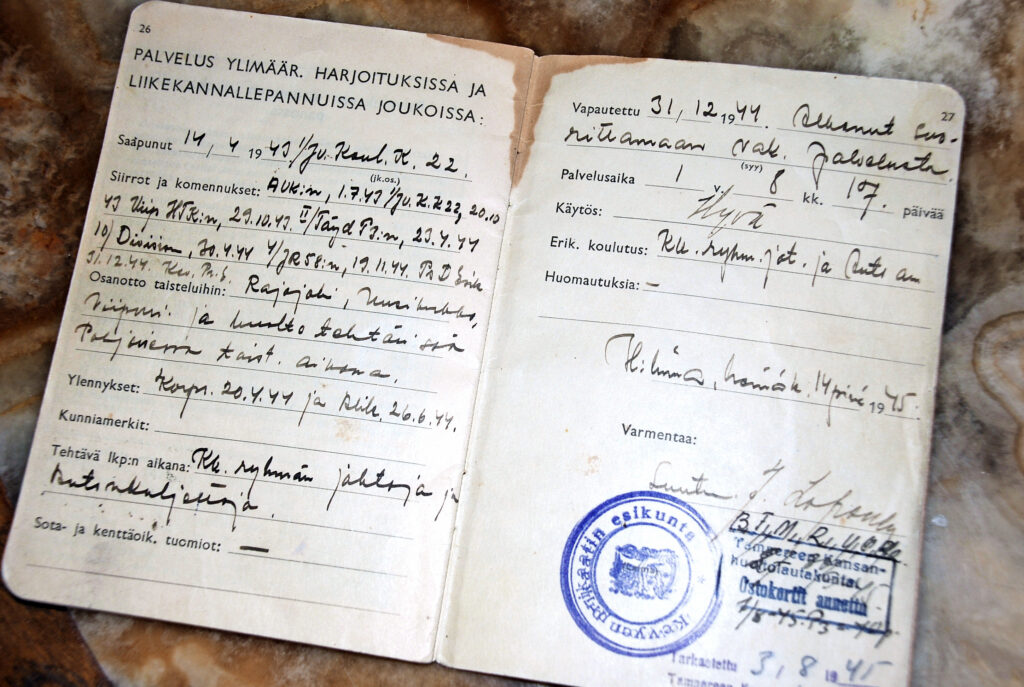 26
PALVELUS YLIMÄÄR. HARJOITUKSISSA JA
LIIKEKANNALLEPANNUISSA JOUKOISSA:
Saapunut 14/4 1943 1/Jv. Koul. K. 22.
(jk.os.)
Siirrot ja komennukset: AUK:n, 1.7.43 1/Jv. K.K 22, 20.10
43 Viip HTK:n, 29.10.43 II/Täyd :n, 23.4.44
10/Division, 30.4.44 4/JR58:n, 19.11.44
31.12.44.
Osanotto taisteluihin: Rajajoki,
Viipuri ja huolto tehtävissä
Pohjoisessa taist. aikana.
Ylennykset: Korpr. 20.4.44 ja Alik. 26.6.44.
Kunniamerkit:
Tehtävä lkp:n aikana: Kk. ryhmän johtaja ja
Autonkuljettaja.
Sota- ja kenttäoik. tuomiot: —
27
Vapautettu 31/12 1944. Alkanut suo-
rittamaan vak. palvelusta.
(syy)
Palvelusaika 1 v. 8 kk. 17. päivää
Käytös: Hyvä
Erik. koulutus: Kk. ryhm. joht. ja
Huomautuksia: —
14 p:nä 1945.
Varmentaa:
Kevyen Prikaatin esikunta
Tampereen Kansan-
huoltolautakunta
Ostokortit annettu
Tarkastettu 3/8 1945
Tampereen